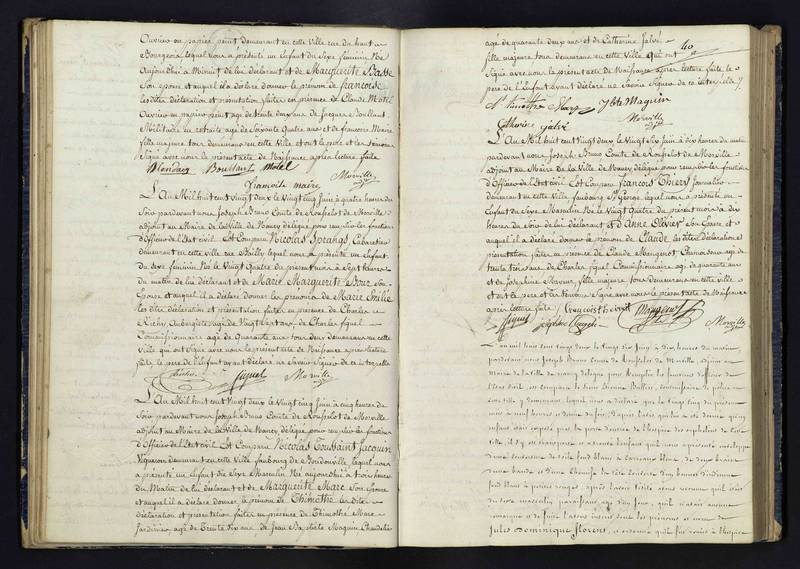 Ouvrier en papier peint demeurant en cette Ville rue du haut
Bourgeois lequel nous a présenté un Enfant du Sexe féminin Né
Aujourd'hui à Minuit de lui déclarant et de Marguerite Basse
Son épouse et auquel il a déclaré donner le prénom de françoise
les dites déclaration et présentation faites en présence de Claude Motel
Ouvrier en papier peint agé de trente deux ans de Jacques Boullant
Militaire en retraite agé de Soixante Quatre ans et de francoise Maire
fille majeure tous demeurans en cette Ville et ont le père et les témoins
Signé avec nous le présent acte de Naissance après lecture faite
Boullant Motel
françoise maire Morville
L'An Mil huit cent Vingt deux le Vingt cinq Juin à quatre heures du
Soir pardevant nous Joseph Bruno Comte de Rousselot de Morville
adjoint au Maire de la Ville de Nancy délégué pour remplir les fonctions
d'Officier de l'Etat civil Est Comparu Nicolas Sprangs Cabaretier
demeurant en cette ville rue Bailly lequel nous a présenté un Enfant
du Sexe féminin Né le Vingt Quatre du présent mois à Sept heures
du matin de lui déclarant et de Marie Marguerite Boue Son
Epouse et auquel il a déclaré donner les prénoms de Marie Emilie
les dites déclaration et présentation faites en présence de Charles
Aubergiste agé de Vingt de Charles figuel
Commissionnaire agé de Quarante ans tous deux demeurans en cette
Ville qui ont Signé avec nous le présent acte de Naissance après lecture
faite, le père de l'Enfant ayant déclaré ne Savoir Signer de ce interpellé
figuel Morville
L'An Mil huit cent Vingt deux le Vingt cinq Juin à cinq heures du
Soir pardevant nous Joseph Bruno Comte de Rousselot de Morville
adjoint au Maire de la Ville de Nancy délégué pour remplir les fonctions
d'Officier de l'Etat civil Est Comparu Nicolas Toussaint Jacquin
Vigneron demeurant en cette Ville faubourg de Boudonville lequel nous
a présenté un Enfant du Sexe Masculin Né aujourd'hui à trois heures
du Matin de lui déclarant et de Marguerite Marc Son épouse
et auquel il a déclaré donner le prénom de Thimothé les dites
déclaration et présentation faites en présence de Thimothé Marc
Jardinier agé de Trente Six ans de Jean Baptiste Maquin Chandelier
agé de quarante deux ans et de Catherine Galvé
fille majeure tous demeurans en cette Ville Qui ont
Signé avec nous le présent acte de Naissance après lecture faite le
père de l'Enfant ayant déclaré ne Savoir Signer de ce interpellé
40
thimothée Marc J bte Maquin
Catherine galvé Morville
L'An Mil huit cent Vingt deux le Vingt Six Juin à dix heures du matin
pardevant nous Joseph Bruno Comte de Rousselot de Morville
adjoint au Maire de la Ville de Nancy délégué pour remplir les fonctions
d'Officier de l'Etat Civil Est Comparu françois Thiery Journalier
demeurant en cette Ville faubourg St George lequel nous a présenté un
Enfant du Sexe Masculin Né le Vingt Quatre du présent mois à dix
heures du Soir de lui déclarant et d'Anne Olivier Son Epouse et
auquel il a déclaré donner le prénom de Claude les dites déclaration et
présentation faites en présence de Claude Mengenot Chamoiseur agé de
trente trois ans de Charles figuel Commissionnaire agé de quarante ans
et de Joséphine Mayeur fille majeure tous demeurans en cette ville
et ont le père et les témoins Signé avec nous le présent acte de Naissance
après lecture faite françois thierit Mangenot
figuel Morville
L'an mil huit cent vingt deux le vingt six Juin à dix heures du matin
pardevant nous Joseph Bruno Comte de Rousselot de Morville adjoint au
Maire de la ville de nancy délégué pour remplir les fonctions d'officier de
l'état civil, est comparu le Sieur commissaire de police en
cette ville y demeurant, lequel nous a déclaré que le vingt cinq du présent
mois à neuf heures et demie du soir
enfant était exposé près la porte d'entrée de l'hospice des orphelins de cette
ville, il s'y est transporté et a trouvé l'enfant qu'il nous a présenté enveloppé
du sexe masculin, paraissant agé d'un jour, qu'il n'avait aucune
remarque
Jules Dominique florens